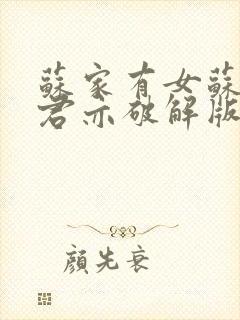 蘇家有女蘇
君亦破解版
顏先衰